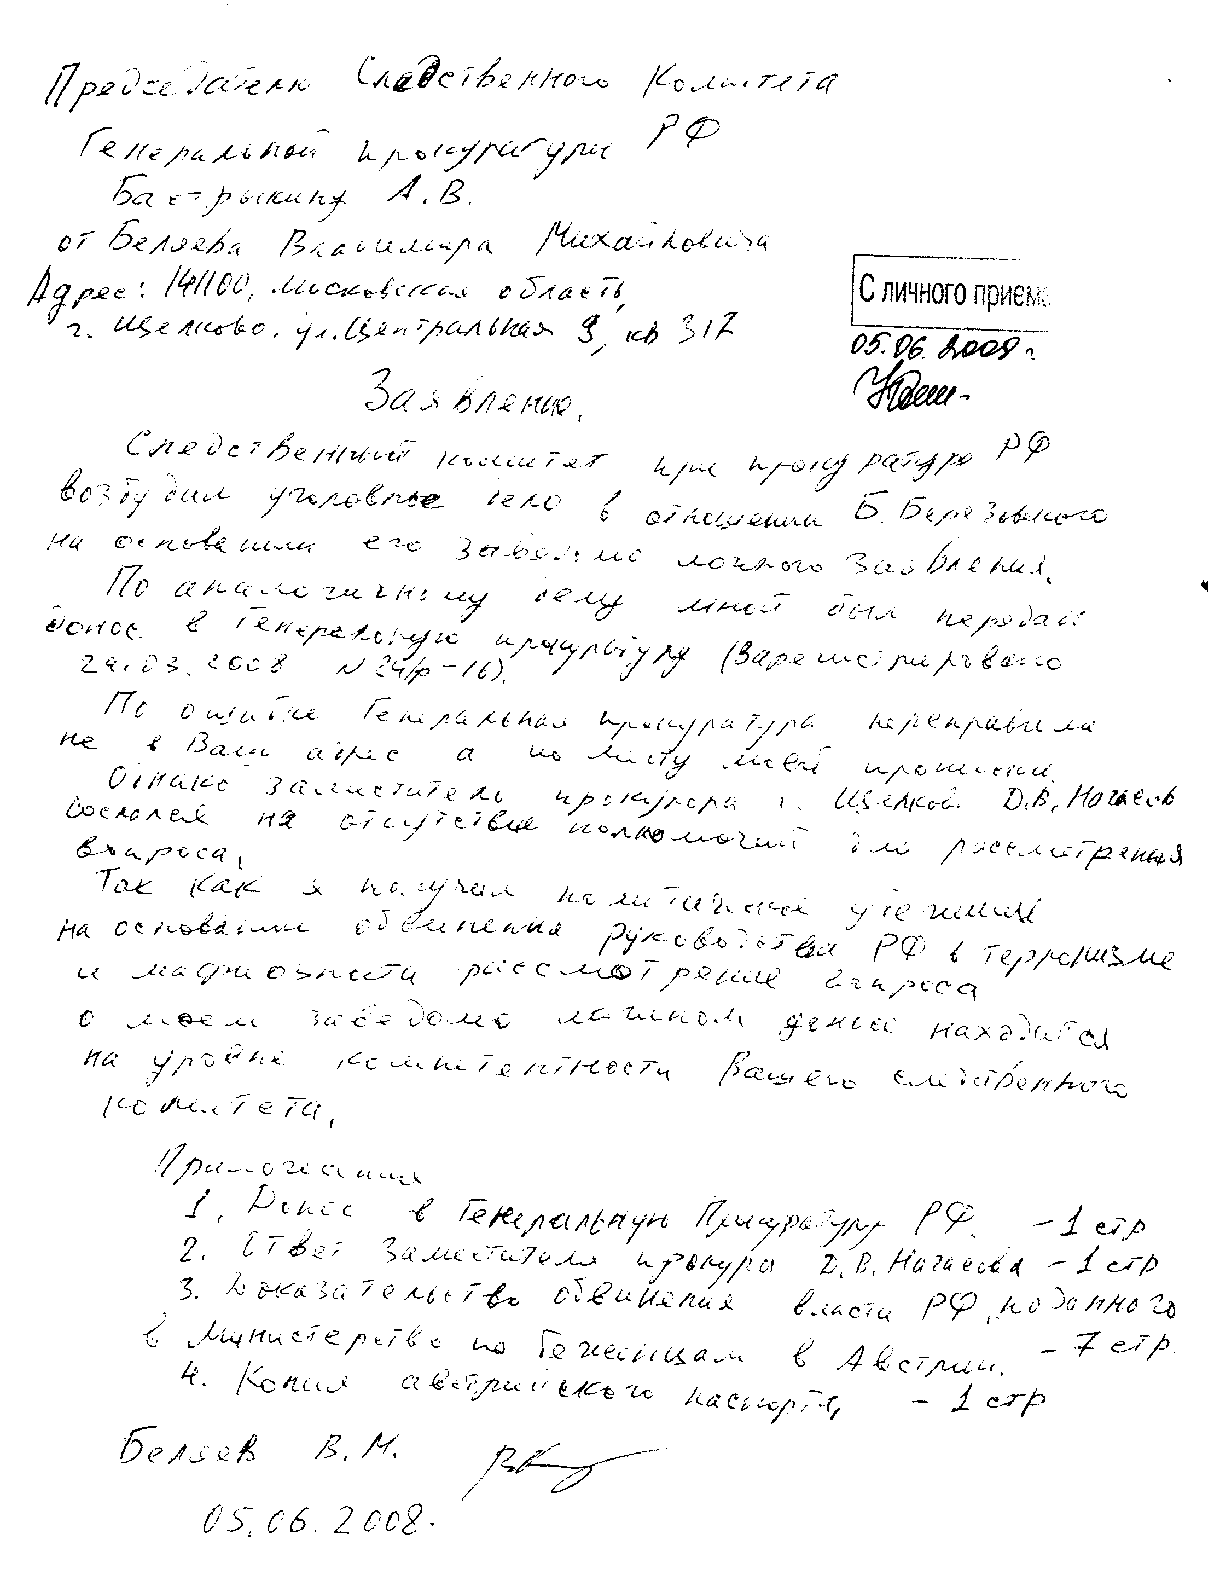 Председателю Следственного Комитета
Генеральной прокуратуры РФ
Бастрыкину А.В.
от Беляева Владимира Михайловича
Адрес: 141100, Московская область,
г. Щелково, ул. Центральная 9, кв 317
С личного прием
05.06.2008 г.
Заявление.
Следственный комитет при прокуратуре РФ
возбудил уголовное дело в отношении Б. Березовского
на основании его заведомо ложного заявления.
По аналогичному делу мной был передан
донос в Генеральную прокуратуру (Зарегистрировано
24.03.2008 N 24/р-16).
По ошибке Генеральная прокуратура переправила
не в Ваш адрес а по месту моей прописки.
Однако заместитель прокурора г. Щелково Д.В. Нагаев
сослался на отсутствие полномочий для рассмотрения
вопроса.
Так как я получил политическое убежище
на основании обвинения руководства РФ в терроризме
и мафиозности рассмотрение вопроса
о моем заведомо ложном доносе находится
на уровне компетентности Вашего следственного
комитета.
Приложения
1. Донос в Генеральную Прокуратуру РФ. - 1 стр
2. Ответ заместителя прокурора Д.В. Нагаева - 1 стр
3. Доказательство обвинения власти РФ, поданного
в министерство по беженцам в Австрии. - 7 стр.
4. Копия австрийского паспорта, - 1 стр
Беляев В.М.
05.06.2008.